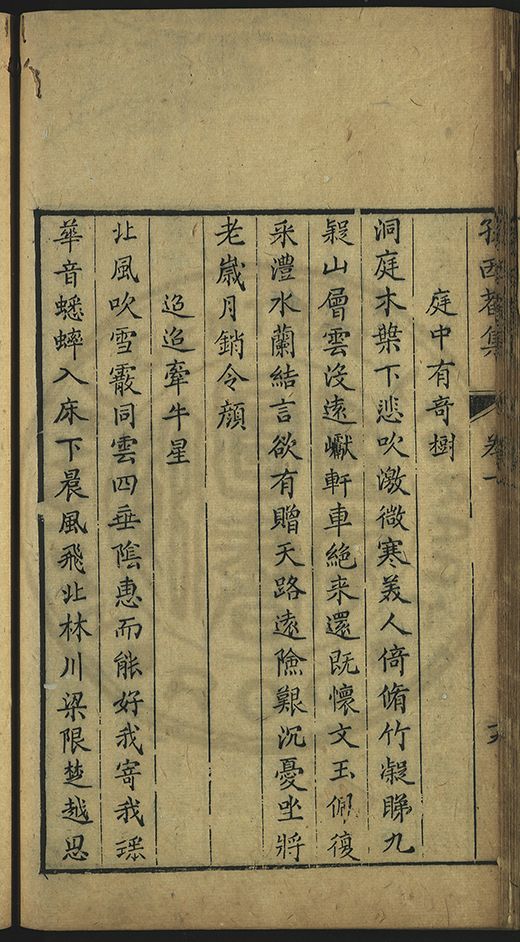 孫西菴集 卷一
庭中有奇樹
洞庭木葉下悲吹激微寒美人倚脩竹凝睇九
疑山層雲沒遠巘軒車絶来還既懷文玉佩復
采澧水蘭結言欲有贈天路遠險艱沉憂坐將
老歲月銷令顔
迢迢牽牛星
北風吹雪霰同雲四垂陰惠而能好我寄我瑶
華音蟋蟀入床下晨風飛北林川梁限楚越思